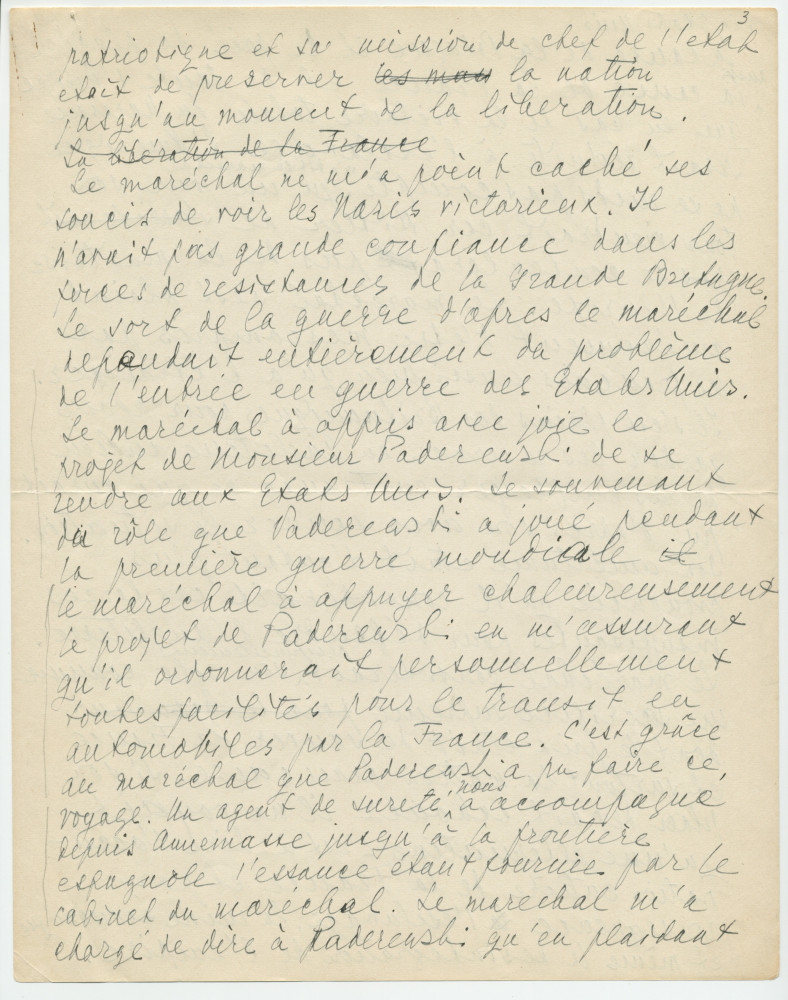 3
patriotique et sa mission de chef de l'etat
etait de preserver les maux la nation
jusqu'au moment de la liberation.
La libération de la France
Le maréchal ne m'a point caché ses
soucis de voir les Nazis victorieux. Il
n'avait pas grande confiance dans les
forces de resistances de la Grande Bretagne.
Le sort de la guerre d'apres le maréchal
dependait entièrement du problème
de l'entrée en guerre des Etats Unis.
Le maréchal à appris avec joie le
projet de Monsieur Paderewski de se
rendre aux Etats Unis. Se souvenant
du rôle que Paderewski a joué pendant
la première guerre mondiale il
le maréchal à appuyer chaleureusement
le projet de Paderewski en m'assurant
qu'il ordonnerait personnellement
toutes facilités pour le transit en
automobiles par la France. C'est grâce
au maréchal que Paderewski a pu faire ce
voyage. Un agent de sureté, nous a accompagné
depuis Annemasse jusqu'à la frontière
espagnole l'essance étant fournie par le
cabinet du maréchal. Le marechal m'a
chargé de dire à Paderewski qu'en plaidant